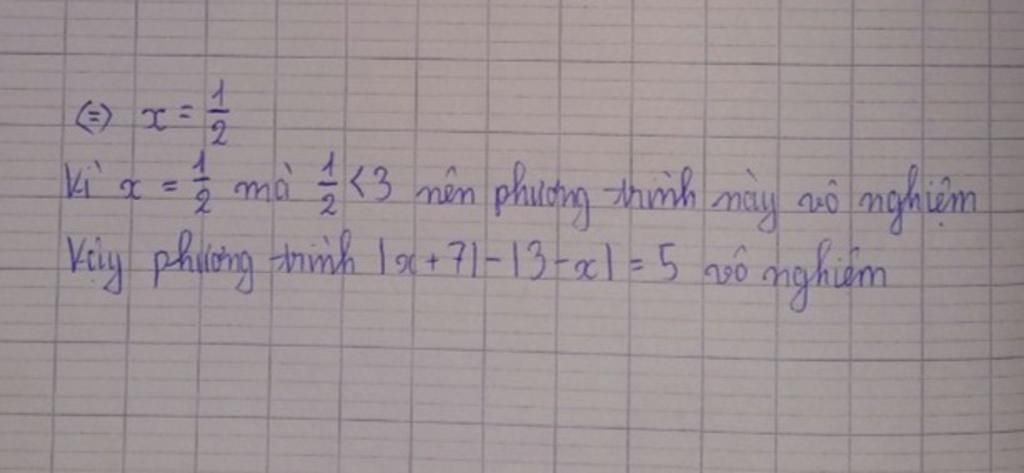 (=) x = 1/2
Vì x = 1/2 mà 1/2 < 3 nên phương trình này vô nghiệm
Vậy phương trình |x + 7| - |3 - x| = 5 vô nghiệm